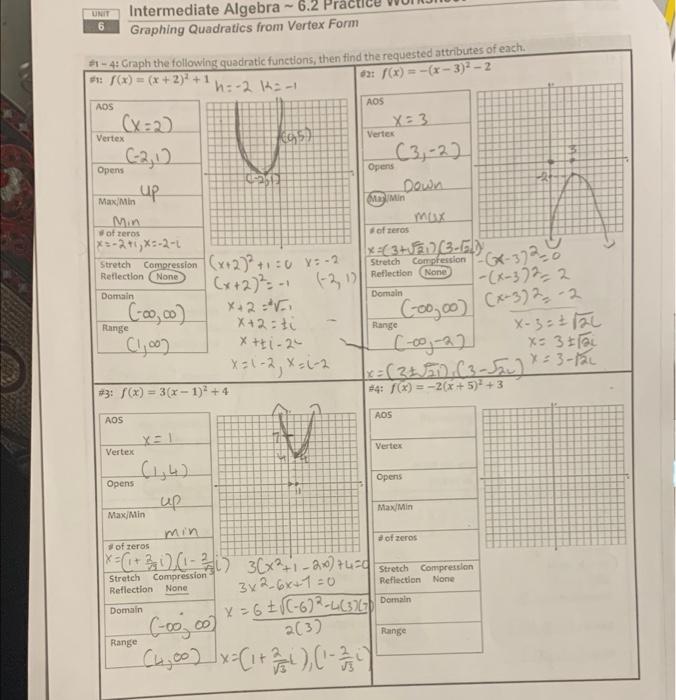 UNIT 6
Intermediate Algebra ~ 6.2 Practice
Graphing Quadratics from Vertex Form
#1 – 4: Graph the following quadratic functions, then find the requested attributes of each.
#1: f(x) = (x + 2)² + 1
h=-2 k=-1
AOS
(x=2)
Vertex
(-2,1)
Opens
up
Max/Min
Min
# of zeros
x=-2+i, x=-2-i
Stretch Compression
Reflection None
Domain
(-∞,∞)
Range
(1,∞)
(0,5)
(-2,1)
(x+2)²+1=0 x=-2
(x+2)²=-1 (-2,1)
x+2=±√-1
x+2=±i
x=i-2, x=i-2
#2: f(x) = −(x − 3)² − 2
AOS
x=3
Vertex
(3,-2)
Opens
Down
Max/Min
max
# of zeros
x=(3+√2i)(3-√2i)
Stretch Compression
Reflection None
Domain
(-∞,∞)
Range
(-∞,-2)
3
-2
-(x-3)²=0
-(x-3)²=2
(x-3)²=-2
x-3=±√2i
x=3±√2i
x=3-√2i
x=(3±√2i),(3-√2i)
#3: f(x) = 3(x − 1)² + 4
AOS
x=1
Vertex
(1,4)
Opens
up
Max/Min
min
# of zeros
x=(1+2/√3 i)(1-2/√3 i)
Stretch Compression
Reflection None
Domain
(-∞,∞)
Range
(4,∞)
7
4
1
3(x²+1-2x)+4=0
3x²-6x+7=0
x=6±√(-6)²-4(3)(7)
2(3)
x=(1+2/√3 i),(1-2/√3 i)
#4: f(x) = −2(x + 5)² + 3
AOS
Vertex
Opens
Max/Min
# of zeros
Stretch Compression
Reflection None
Domain
Range